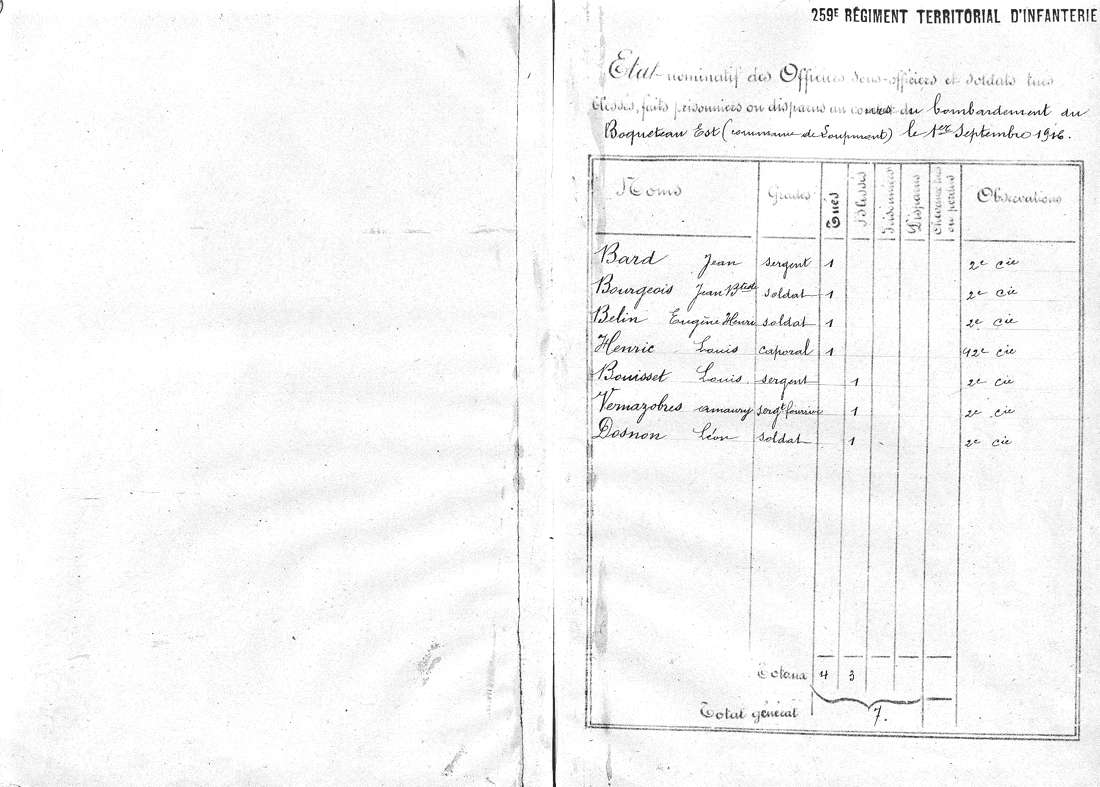 259E RÉGIMENT TERRITORIAL D'INFANTERIE
Etat nominatif des Officiers sous-officiers et soldats tués
blessés, faits prisonniers ou disparus au cours du bombardement du
Boqueteau Est (commune de Loupmont) le 1er Septembre 1916.
Noms Grades Tués Blessés Prisonniers Disparus Observations
Bard Jean sergent 1 2e cie
Bourgeois Jean Btste soldat 1 2e cie
Belin Eugène Henri soldat 1 2e cie
Henric Louis caporal 1 2e cie
Bouisset Louis sergent 1 2e cie
Vernazobres Amaury sergt fourrier 1 2e cie
Dosnon Léon soldat 1 2e cie
Totaux 4 3
Total général 7.